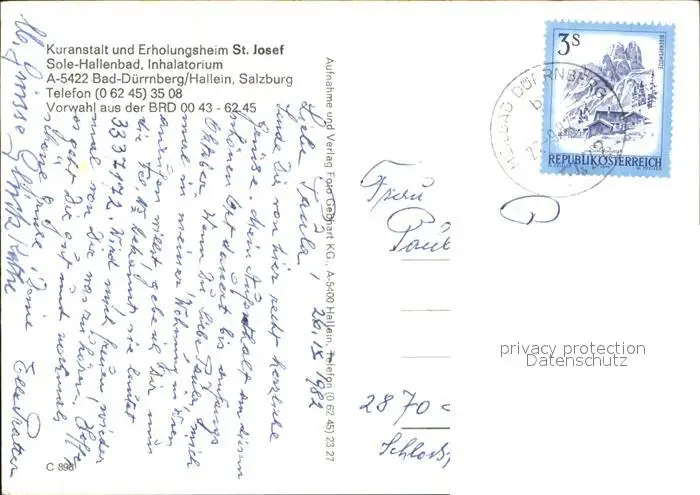 Kuranstalt und Erholungsheim St. Josef
Sole-Hallenbad, Inhalatorium
A-5422 Bad-Dürrnberg/Hallein, Salzburg
Telefon (0 62 45) 35 08
Vorwahl aus der BRD 00 43 - 62 45
Liebe Paula! 26.IX.1982
Sende Dir von hier recht herzliche
Grüsse. Mein Aufenthalt an diesem
schönen Ort dauert bis anfangs
Oktober. Wenn Du liebe Paula, mich
mal in meiner Wohnung in Wien
anrufen willst, gebe ich Dir nun
die bekannt sie lautet
3337172. Wird mich freuen, wieder
mal von Dir was zu hören. Hoffe
es geht Dir gut und nochmals
Grüsse Deine
C 898
Aufnahme und Verlag Foto Gebhart KG., A-5400 Hallein, Telefon (0 62 45) 23 27
3 S
REPUBLIK ÖSTERREICH
BAD DÜRRNBERG
Frau
2870
Schloss
privacy protection
Datenschutz